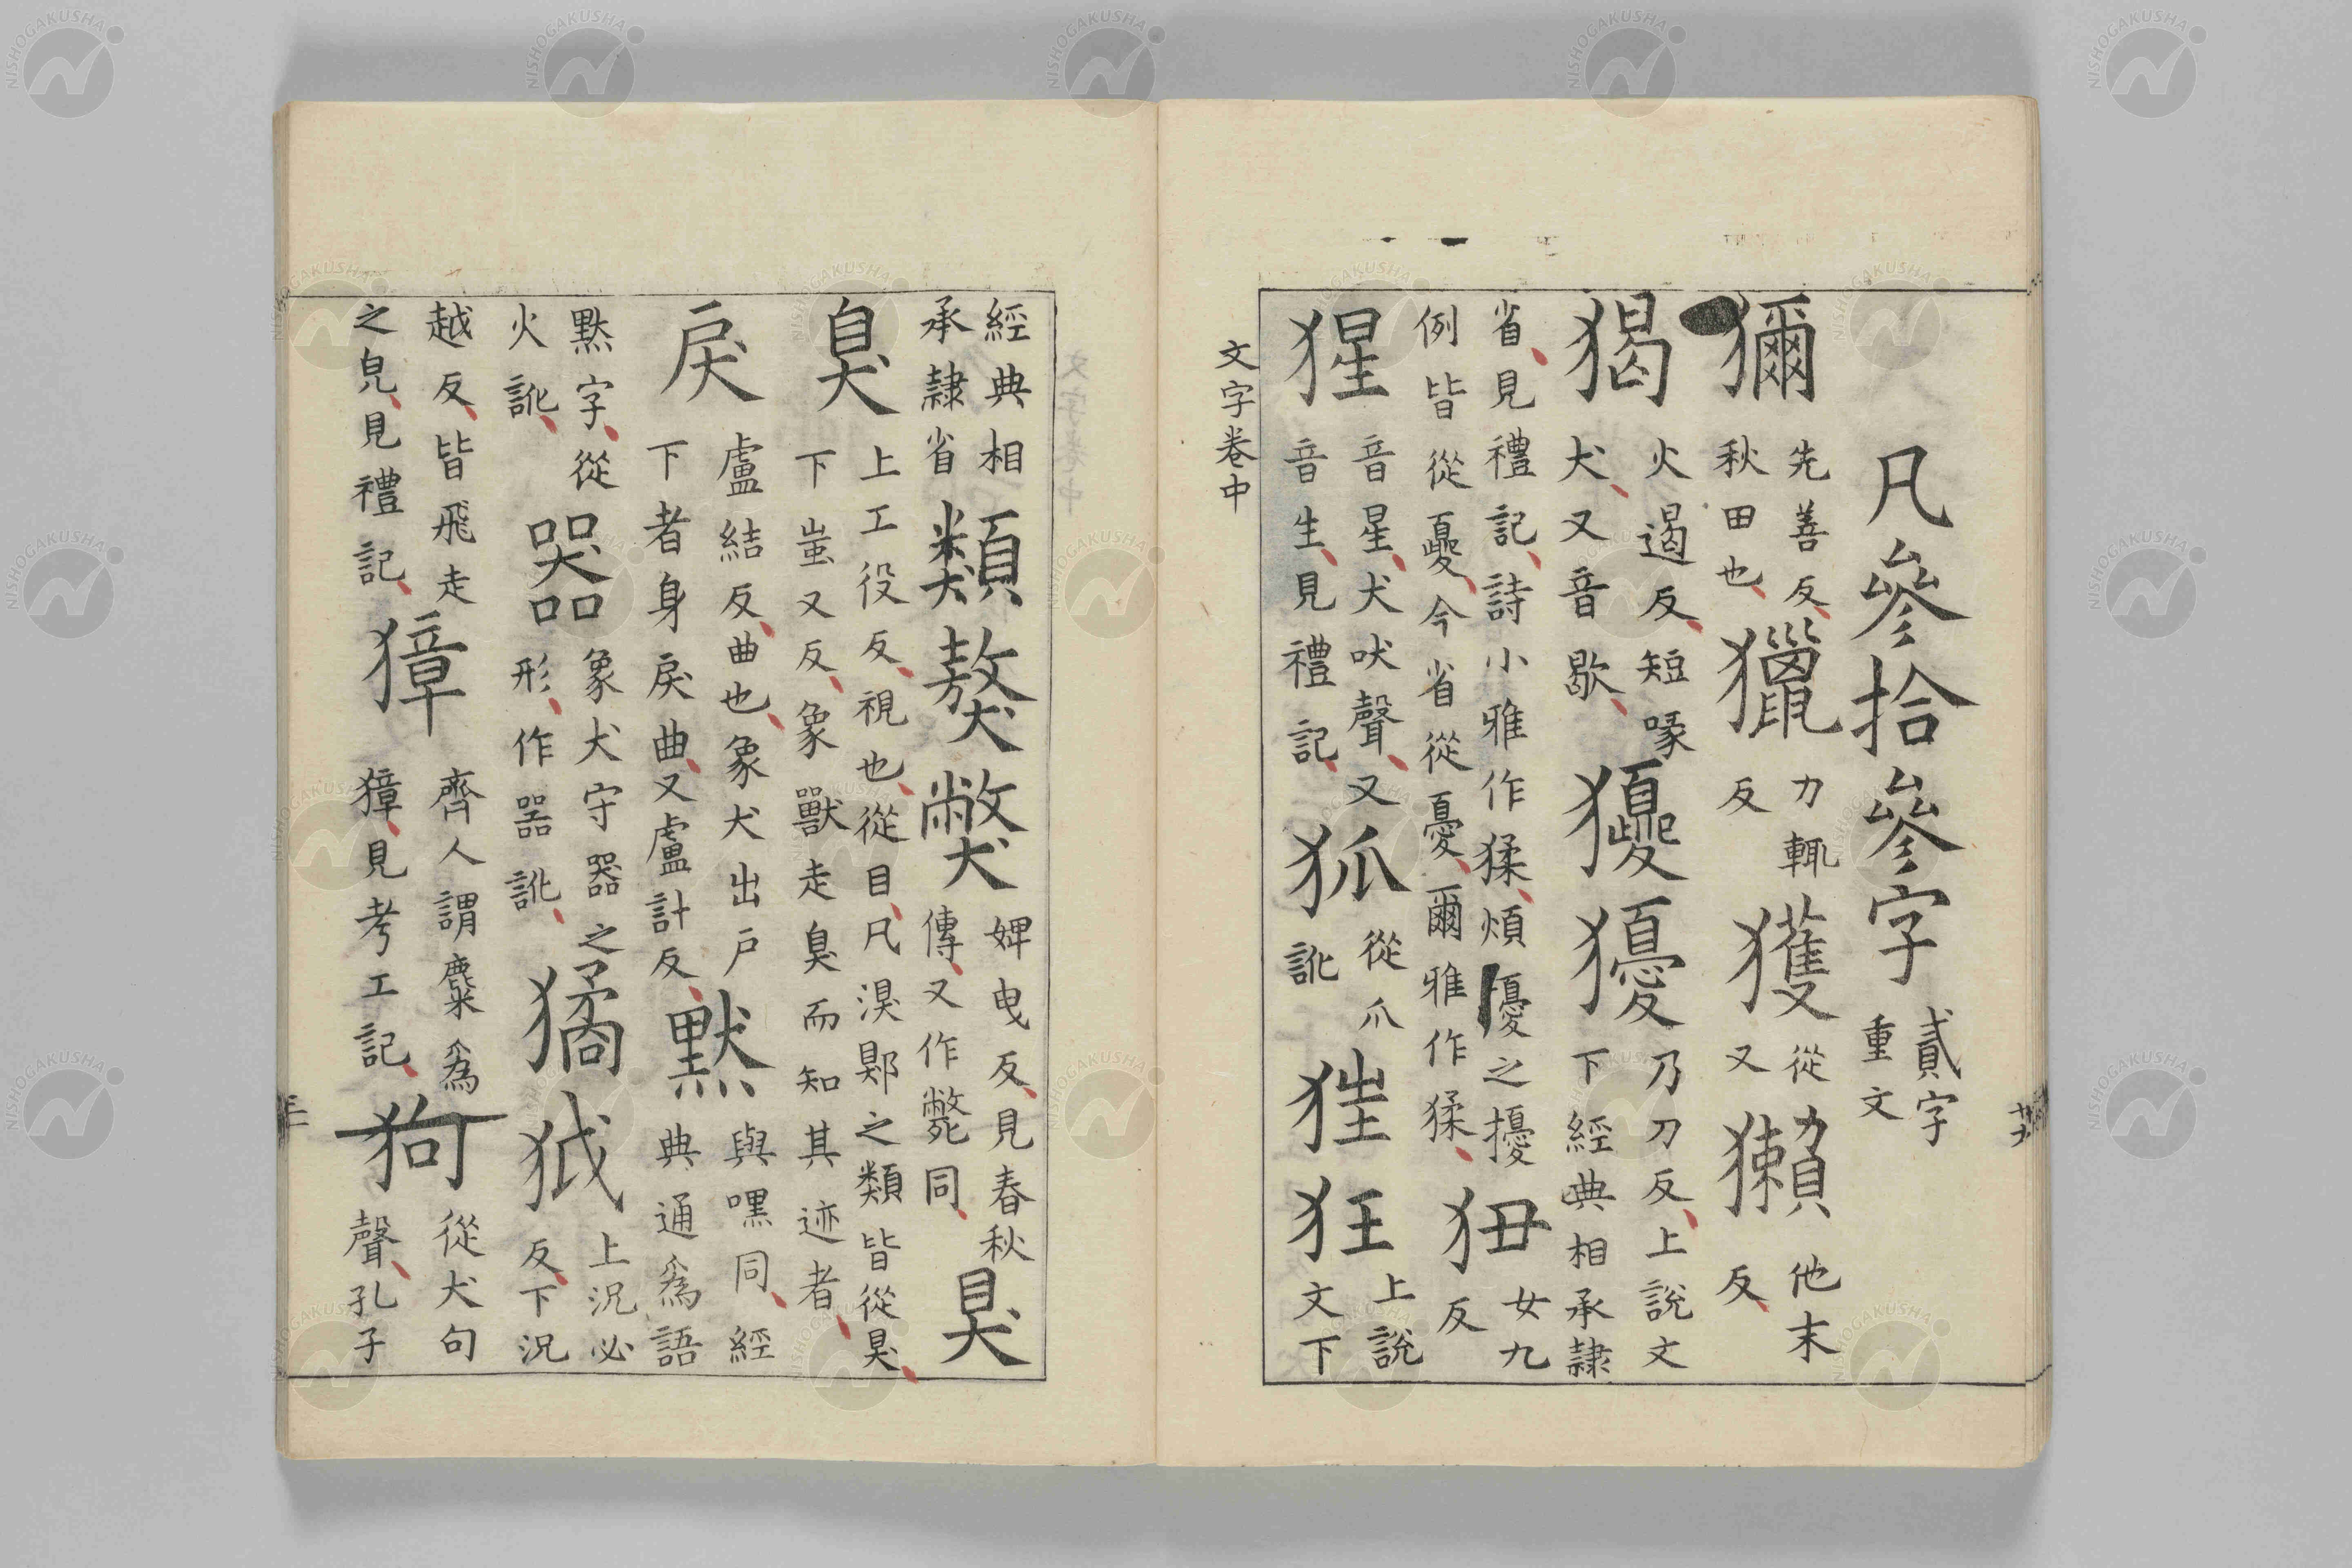 凡參拾參字貳字重文
獮先善反秋田也獵力輒反獲從又獺他末反
猲火遏反短喙犬又音歇獿獶乃刀反上說文下經典相承隷
省見禮記詩小雅作猱煩擾之擾例皆從夒今省從憂爾雅作猱狃女九反
猩音星犬吠聲又音生見禮記狐從爪訛狌狂上說文下
文字卷中
經典相承隷省類獒獘婢曳反見春秋傳又作斃同狊
臭上工役反視也從目凡湨鄓之類皆從狊下蚩又反象獸走臭而知其迹者
戾盧結反曲也象犬出戶下者身戾曲又盧計反默與嘿同經典通爲語
默字從火訛器象犬守器之形作噐訛獝狘上況必反下況
越反皆飛走之皃見禮記獐齊人謂麋爲獐見考工記狗從犬句聲孔子